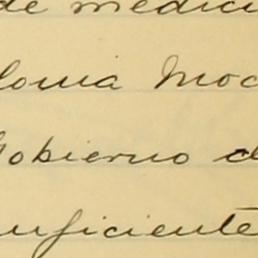 de medici
lonia Moc
Gobierno d
uficiente